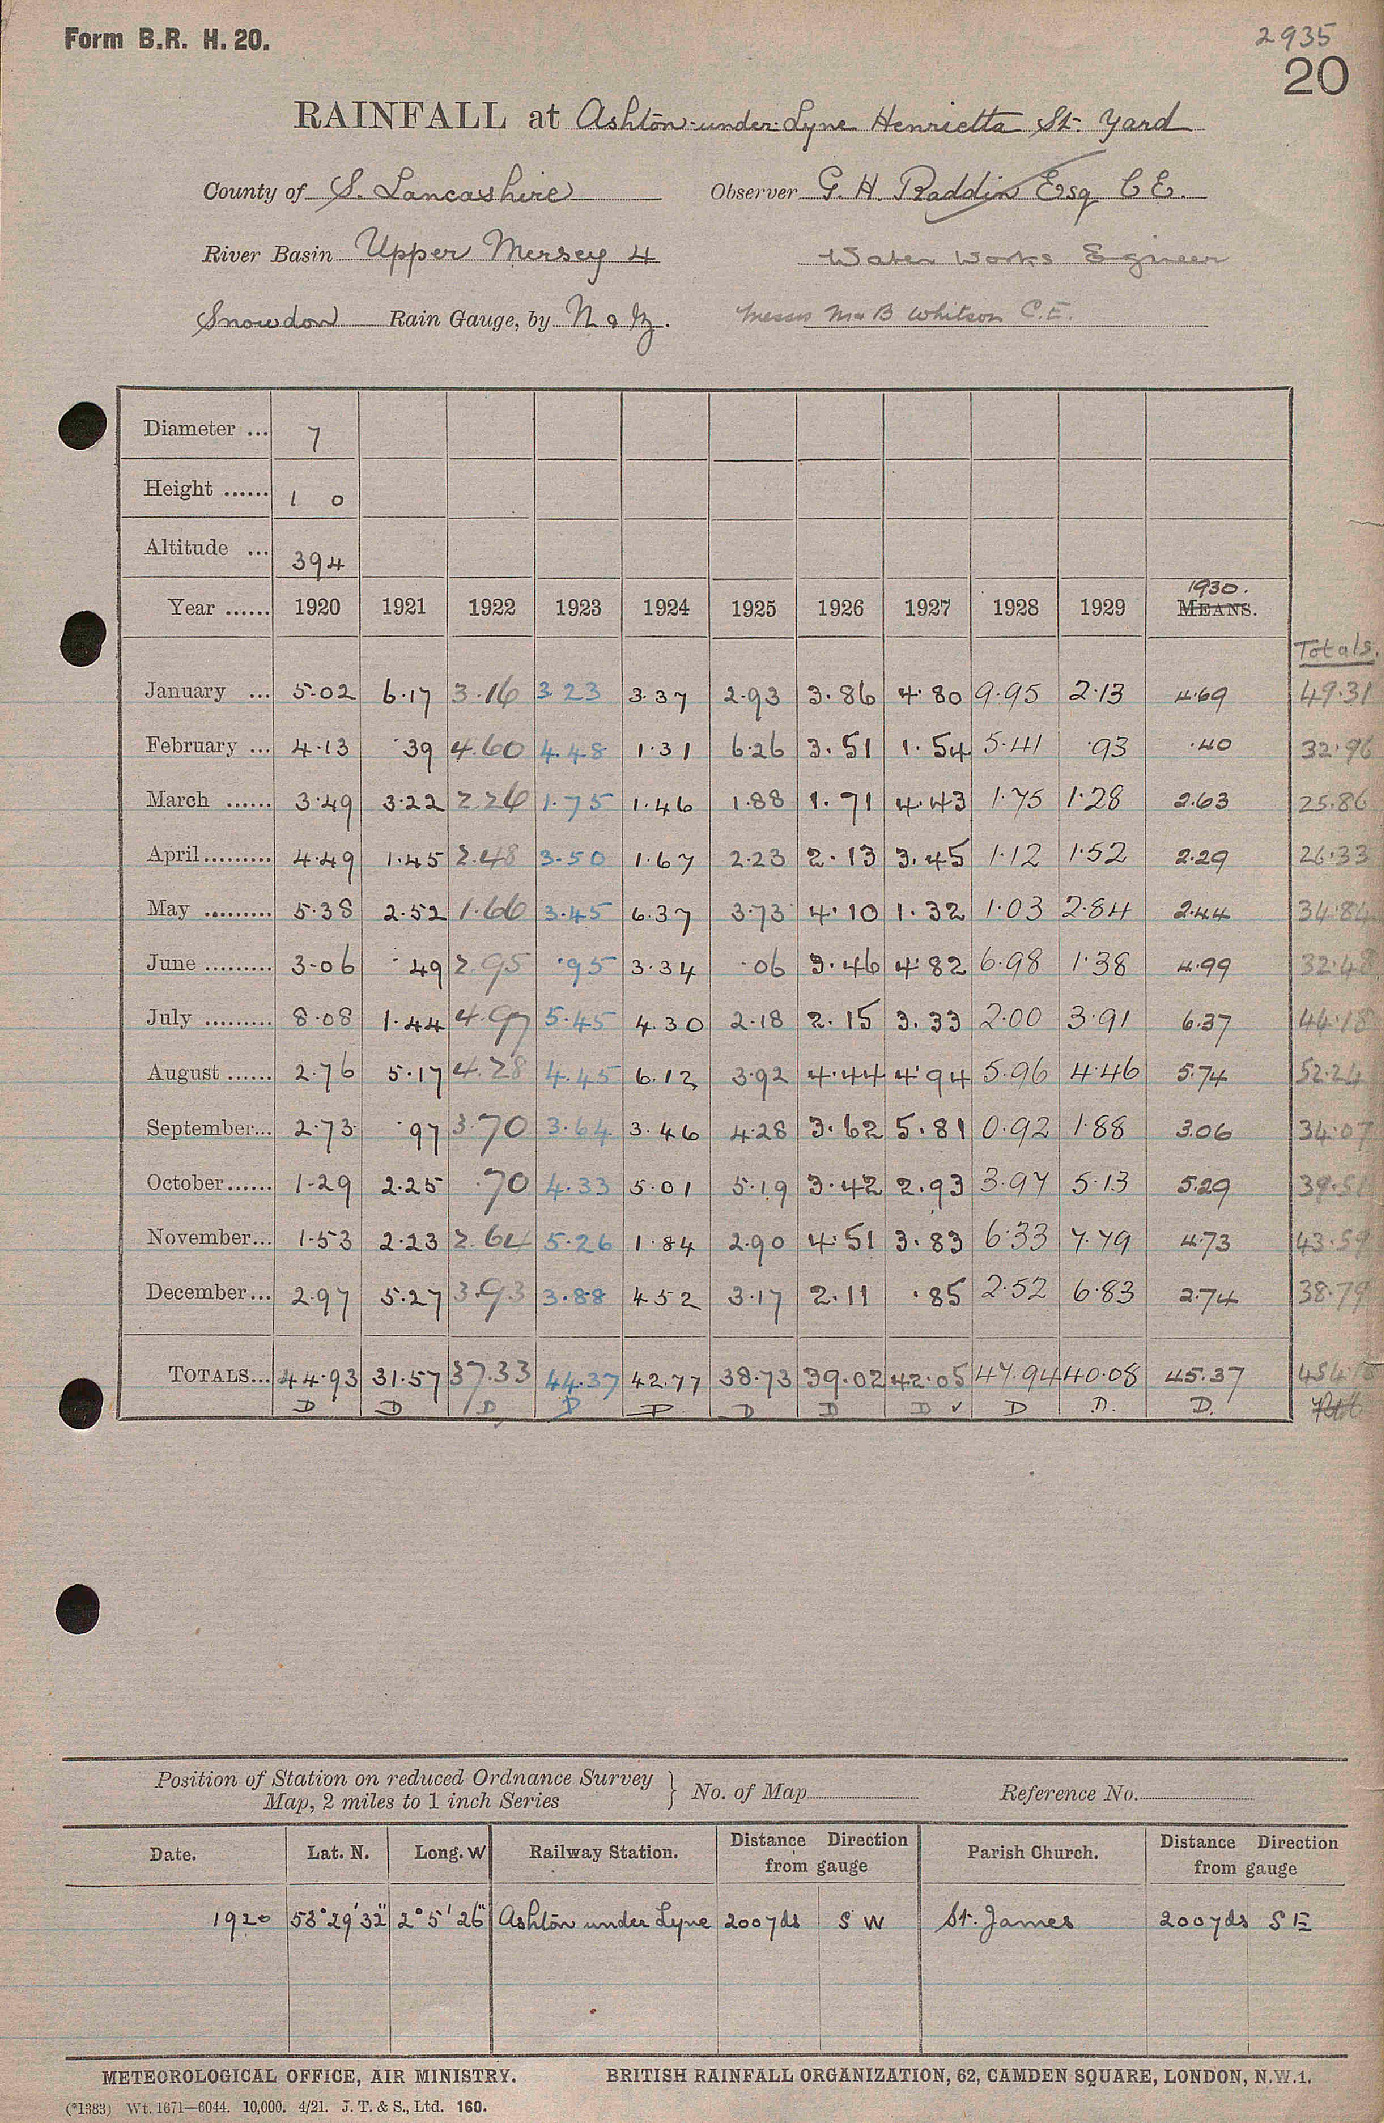 Form B.R. H. 20.
2935
20
RAINFALL at Ashton-under-Lyne Henrietta St. Yard
County of S. Lancashire Observer G. H. Raddin Esq C E.
River Basin Upper Mersey 4 Water Works Egineer
Snowdon Rain Gauge, by N & Z. Messrs Mr B Whitson C.E.
Diameter ... 7
Height ...... 1 0
Altitude ... 394
1930.
Year ...... 1920 1921 1922 1923 1924 1925 1926 1927 1928 1929 MEANS.
Totals.
January ... 5.02 6.17 3.16 3.23 3.37 2.93 3.86 4.80 9.95 2.13 4.69 49.31
February ... 4.13 .39 4.60 4.48 1.31 6.26 3.51 1.54 5.41 .93 .40 32.96
March ...... 3.49 3.22 2.26 1.75 1.46 1.88 1.71 4.43 1.75 1.28 2.63 25.86
April ......... 4.49 1.45 2.48 3.50 1.67 2.23 2.13 3.45 1.12 1.52 2.29 26.33
May ......... 5.38 2.52 1.66 3.45 6.37 3.73 4.10 1.32 1.03 2.84 2.44 34.84
June ......... 3.06 .49 2.95 .95 3.34 .06 3.46 4.82 6.98 1.38 4.99 32.48
July ......... 8.08 1.44 4.97 5.45 4.30 2.18 2.15 3.33 2.00 3.91 6.37 44.18
August ...... 2.76 5.17 4.28 4.45 6.12 3.92 4.44 4.94 5.96 4.46 5.74 52.24
September... 2.73 .97 3.70 3.64 3.46 4.28 3.62 5.81 0.92 1.88 3.06 34.07
October...... 1.29 2.25 .70 4.33 5.01 5.19 3.42 2.93 3.97 5.13 5.29 39.51
November... 1.53 2.23 2.64 5.26 1.84 2.90 4.51 3.83 6.33 7.79 4.73 43.59
December... 2.97 5.27 3.93 3.88 4.52 3.17 2.11 .85 2.52 6.83 2.74 38.79
TOTALS... 44.93 31.57 37.33 44.37 42.77 38.73 39.02 42.05 47.94 40.08 45.37
D D D D D D D D ✓ D D. D.
Position of Station on reduced Ordnance Survey Map, 2 miles to 1 inch Series } No. of Map Reference No.
Date. Lat. N. Long. W Railway Station. Distance Direction from gauge Parish Church. Distance Direction from gauge
1920 53° 29' 32" 2° 5' 26" Ashton under Lyne 200 yds S W St. James 200 yds S E
METEOROLOGICAL OFFICE, AIR MINISTRY. BRITISH RAINFALL ORGANIZATION, 62, CAMDEN SQUARE, LONDON, N.W.1.
(*1383) Wt. 1671—6044. 10,000. 4/21. J. T. & S., Ltd. 160.